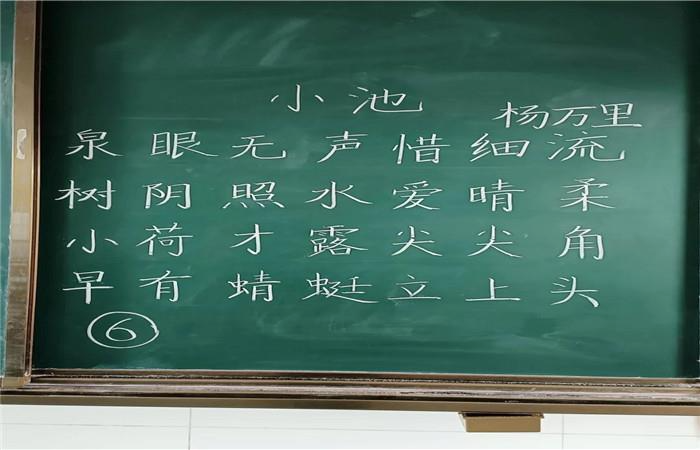 小池
杨万里
泉眼无声惜细流
树阴照水爱晴柔
小荷才露尖尖角
早有蜻蜓立上头
⑥